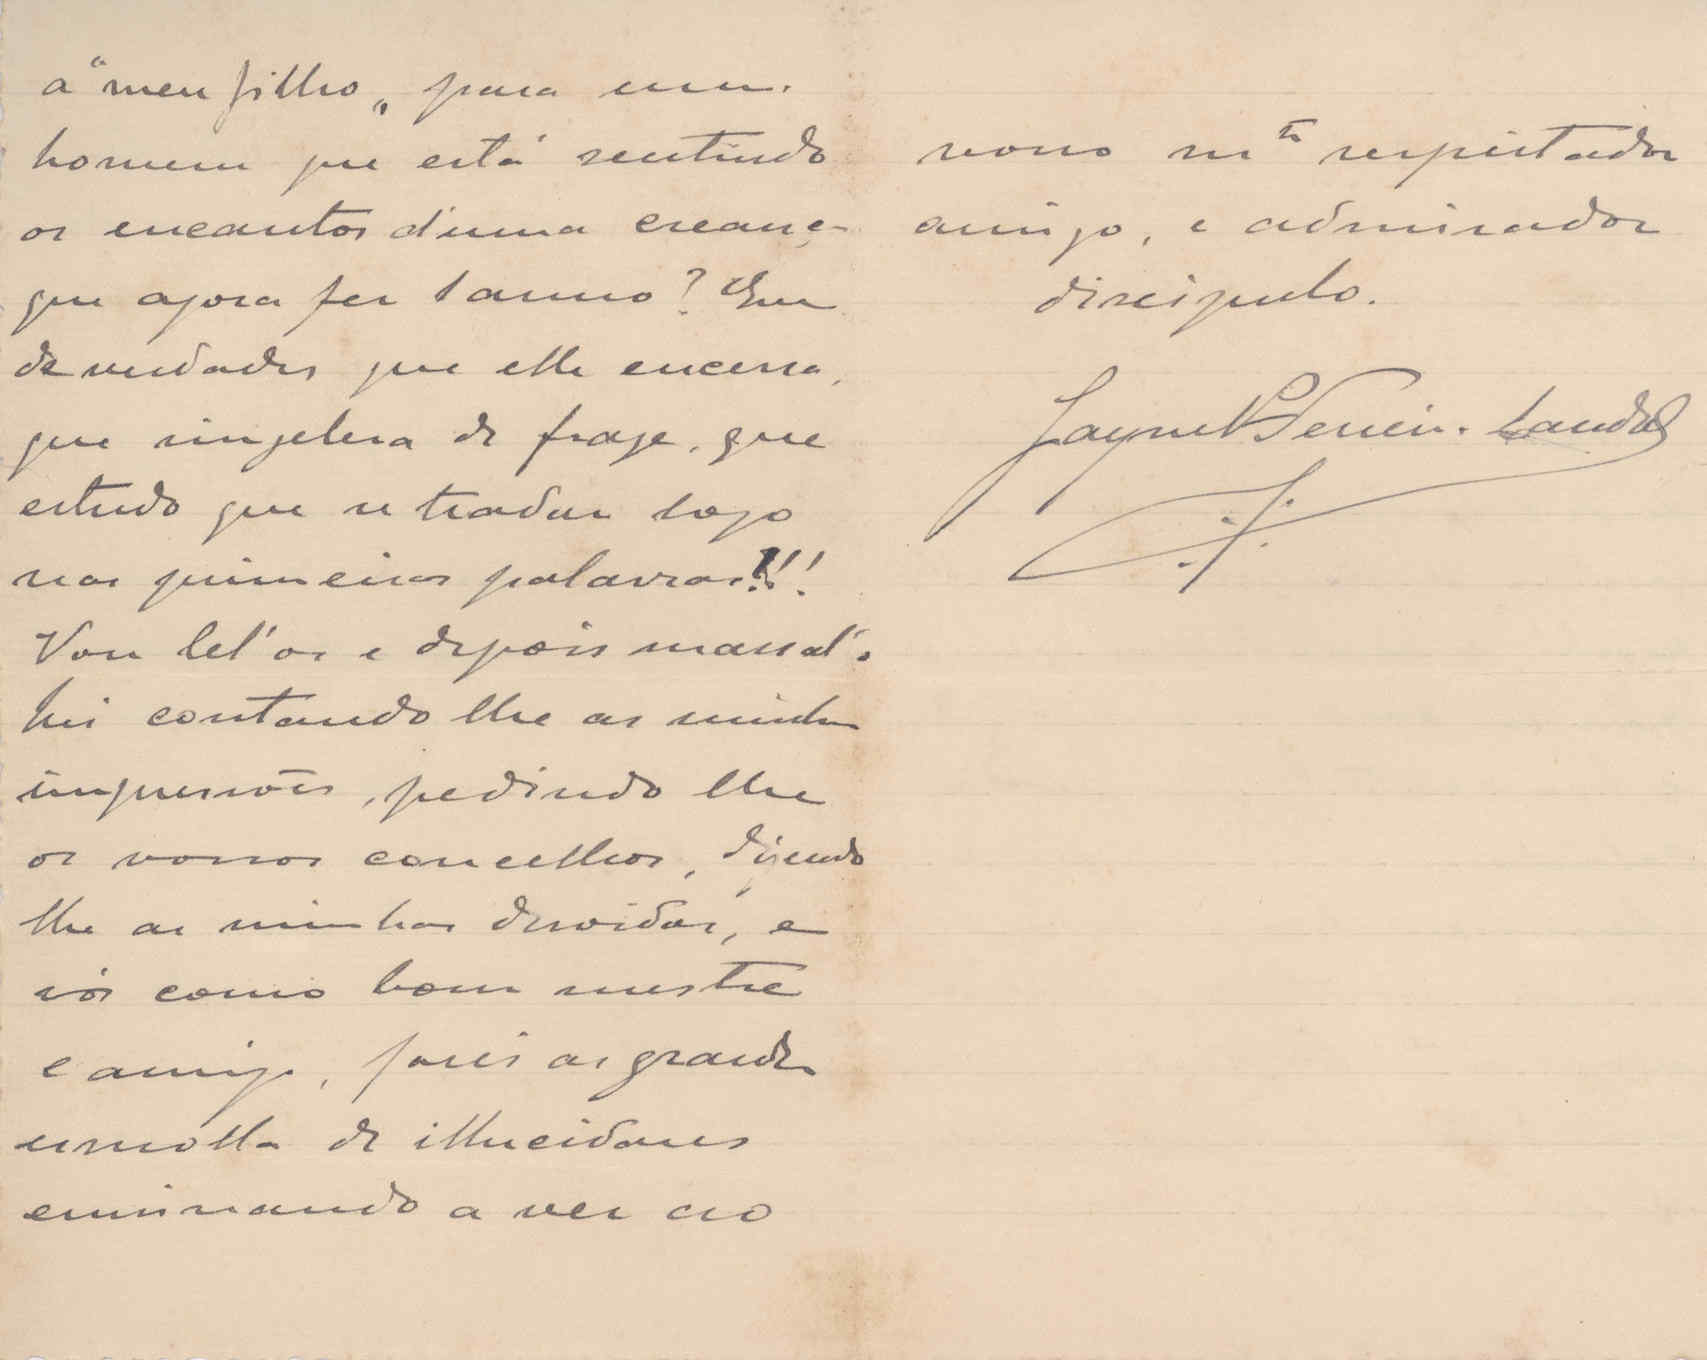 a "meu filho„ para um.
homem que está sentindo
os encantos d'uma creanç
que agora fez 1 anno? Em
de verdades que elle encerra,
que singelesa de frase, que
estudo que se traduz logo
nas primeiras palavras!!!
Vou lel'os e depois massal'o
hei contando lhe as minhas
impressões, pedindo lhe
os vossos concelhos, dizendo
lhe as minhas duvidas, e
vós como bom mestre
e amigo, fareis a grande
esmolla de illucidares
ensinando a ver ao
vosso mto respeitador
amigo, e admirador
discipulo.
Jayme Ferreir.